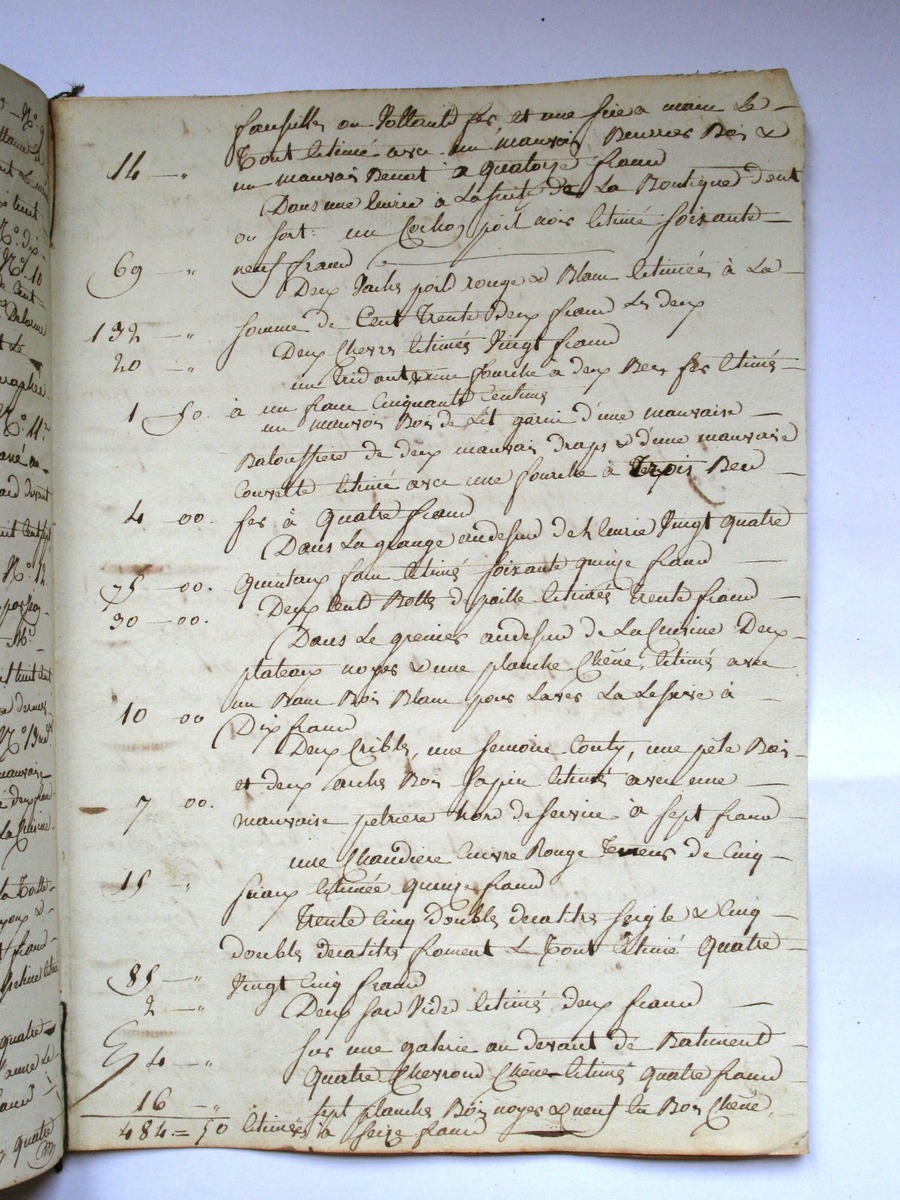 faucilles ou Vollants fer et une scie a main Le
Tout Estimé avec un mauvais Beurrier Bois &
14 — " un mauvais Benot a quatorze franc
Dans une Ecurie à La suite de La Boutique dont
on sort: un Cochon poil noir Estimé soixante
69 — " neuf franc
Deux vaches poil rouge & Blanc Estimées à La
132 — " somme de Cent Trente Deux franc Les deux
20 — " Deux Chevres Estimés Vingt franc
un Tridant & une fourche a deux Becs fer Estimés
1 50. à un franc Cinquante Centimes
un mauvais Bois de Lit garni d'une mauvaise
Baloussiere de deux mauvais draps & d'une mauvaise
Couverte Estimé avec une fourche à Trois Bec
4 00. fer à quatre franc
Dans La grange audessus de L'Ecurie Vingt quatre
75 — 00. quintaux foin Estimés soixante quinze franc
30 — 00. Deux Cent Bottes de paille Estimées Trente franc
Dans Le grenier audessus de La Cuisine Deux
plateaux noyer & une planche Chêne, Estimés avec
un Banc Bois Blanc pour Laver La Lessive à
10 00 Dix franc
Deux Cribles, une semoire, une pele Bois
et deux arches Bois sapin Estimés avec une
7 00. mauvaise petriere hors de service à sept franc
une Chaudiere Cuivre Rouge Teneur de Cinq
15 — " seaux Estimée quinze franc
Trente Cinq doubles decalitres seigle & Cinq
doubles decalitres froment Le Tout Estimé quatre
85 — " Vingt Cinq franc
2 — " Deux sac Vide Estimés deux franc
sur une galerie au devant de Batiment
4 — " quatre Chevrond Chene Estimés quatre franc
16 — " sept planches Bois noyer & neuf En Bois Chêne,
484 = 50 Estimées à seize franc